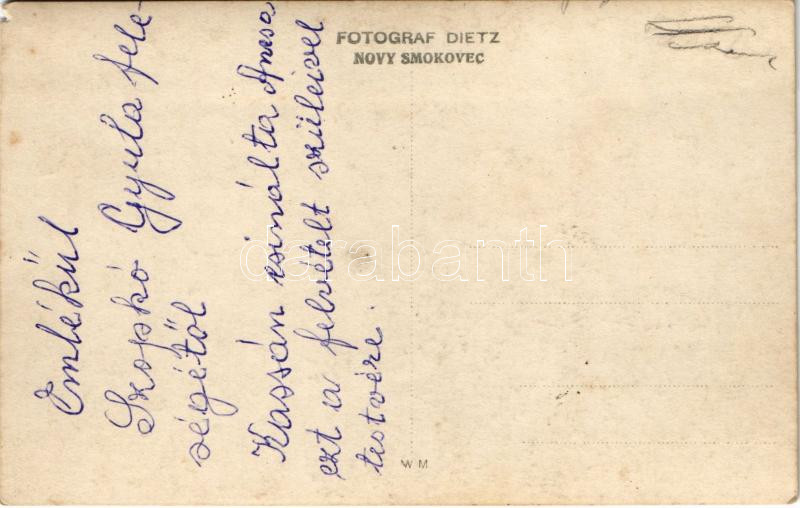 FOTOGRAF DIETZ
NOVY SMOKOVEC
Emlékül
Szopkó Gyula fele-
ségétől
Kassán csinálta Anesa
ezt a felvételt szüleivel
testvére.
W M
darabanth